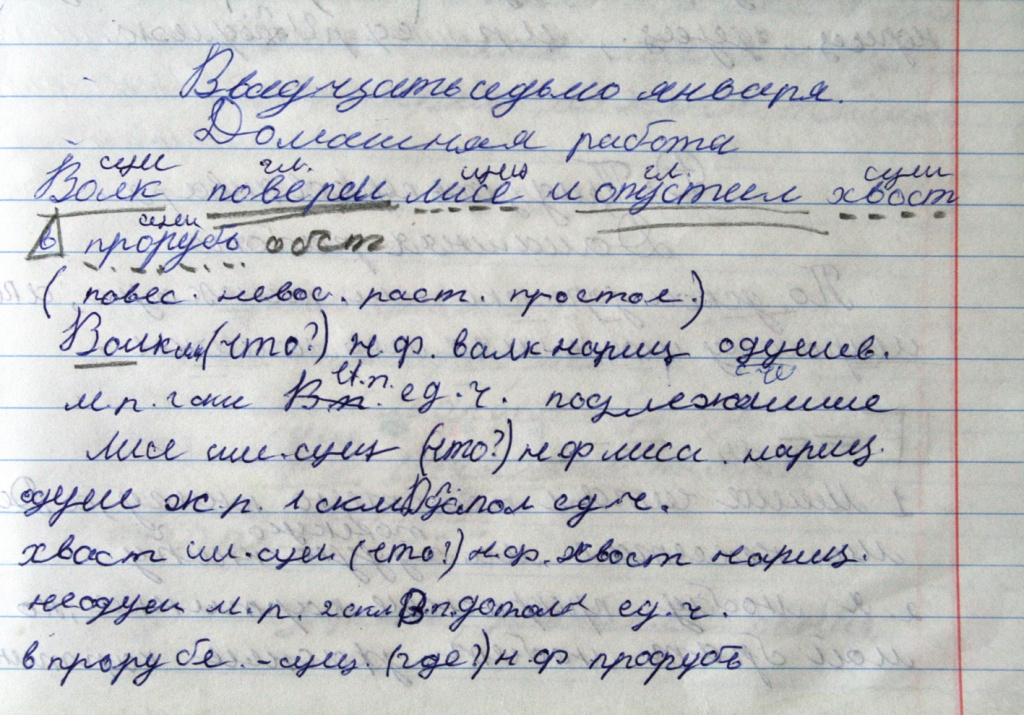 Ввадчцатьседьмо января.
Домашная работа
сущ гл. сущ гл. сущ
Волк поверел лисе и опустил хвост
сущ
в прорубь обст
( повес. невос. раст. простое.)
Волк (что?) н.ф. валк нариц одушев.
м.р. 2 скл И.п. ед.ч. подлежашше
лисе им.сущ (что?) н.ф лиса. нариц.
одуш ж.р. 1 скл Д.п допол ед.ч.
хваст им.сущ (что?) н.ф. хвост нариц.
неодуш м.р. 2 скл В.п. допол ед.ч.
в прорубе. -сущ. (где?) н.ф прорубь